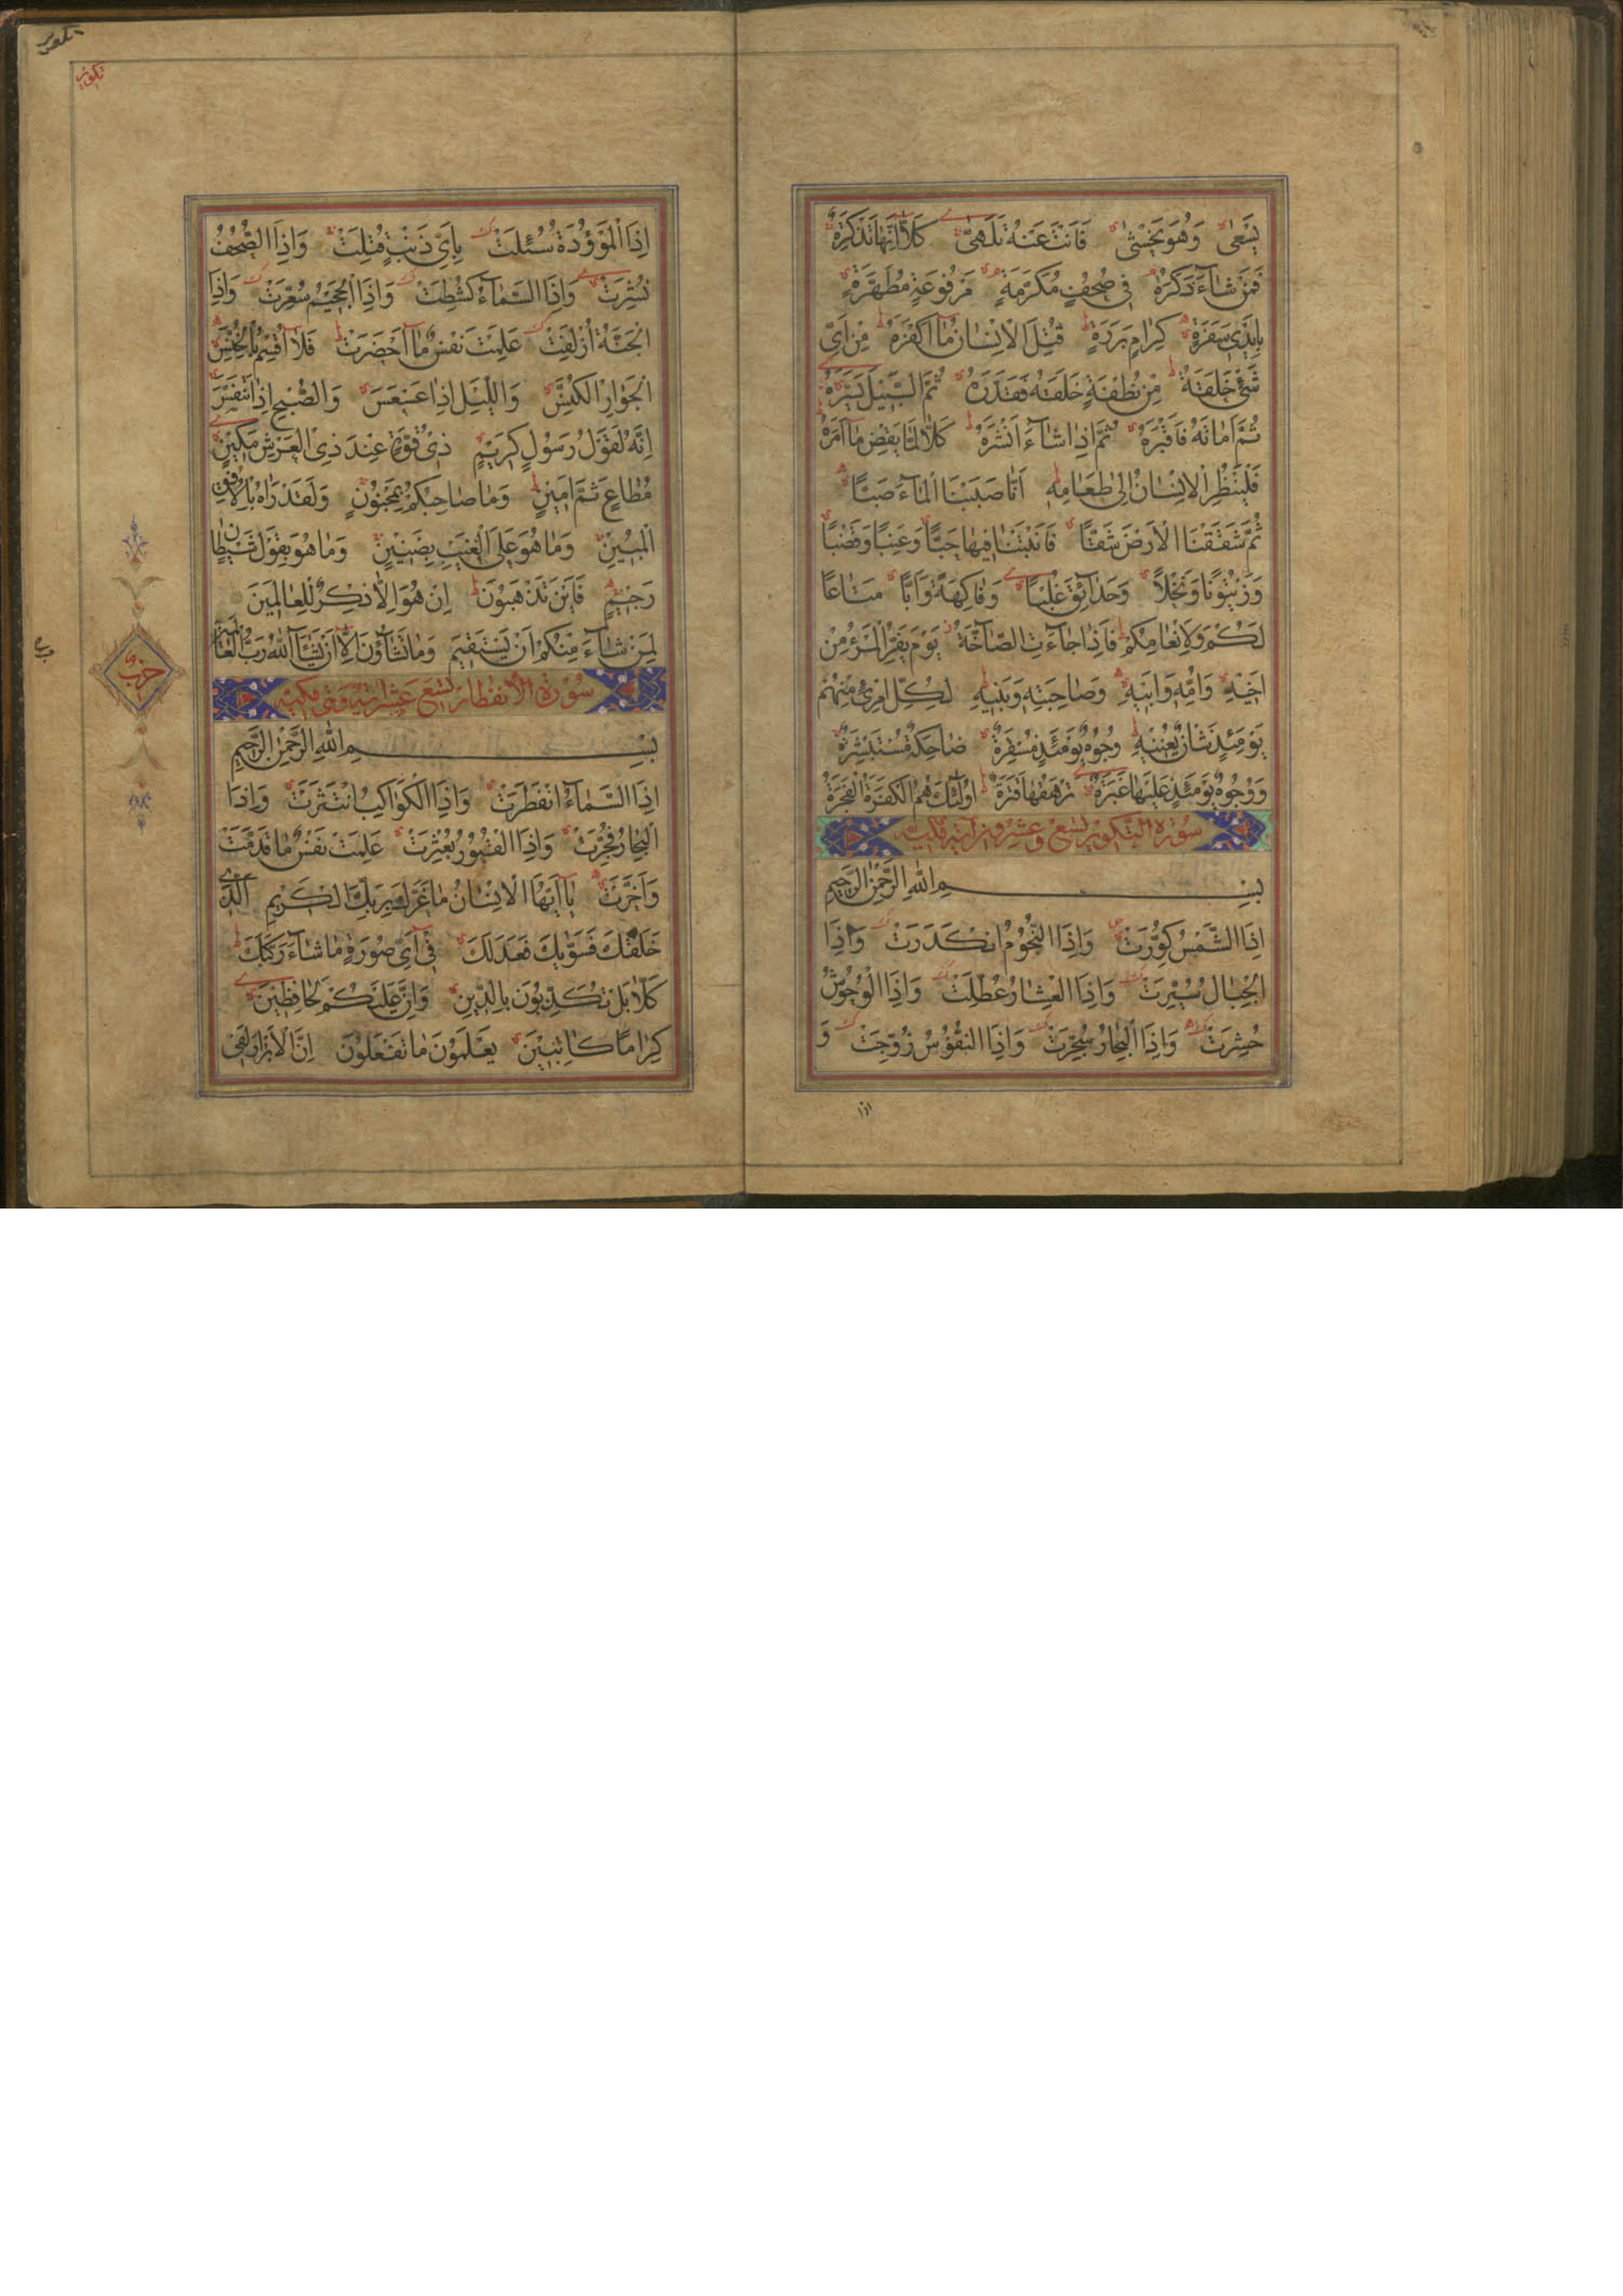 يَسْعىٰ وَهُوَ يَخْشىٰ فَاَنْتَ عَنْهُ تَلَهّىٰ كَلّآ اِنَّهٰا تَذْكِرَةٌ
فَمَنْ شٰآءَ ذَكَرَهُ فى صُحُفٍ مُكَرَّمَةٍ مَرْفُوعَةٍ مُطَهَّرَةٍ
بِاَيْدى سَفَرَةٍ كِرٰامٍ بَرَرَةٍ قُتِلَ الْاِنْسٰانُ مٰآ اَكْفَرَهُ مِنْ اَىِّ
شَىْءٍ خَلَقَهُ مِنْ نُطْفَةٍ خَلَقَهُ فَقَدَّرَهُ ثُمَّ السَّبيلَ يَسَّرَهُ
ثُمَّ اَمٰاتَهُ فَاَقْبَرَهُ ثُمَّ اِذٰا شٰآءَ اَنْشَرَهُ كَلّٰا لَمّٰا يَقْضِ مٰآ اَمَرَهُ
فَلْيَنْظُرِ الْاِنْسٰانُ اِلىٰ طَعٰامِهِ اَنّٰا صَبَبْنَا الْمٰآءَ صَبًّا
ثُمَّ شَقَقْنَا الْاَرْضَ شَقًّا فَاَنْبَتْنٰا فيهٰا حَبًّا وَعِنَبًا وَقَضْبًا
وَزَيْتُونًا وَنَخْلًا وَحَدٰآئِقَ غُلْبًا وَفٰاكِهَةً وَاَبًّا مَتٰاعًا
لَكُمْ وَلِاَنْعٰامِكُمْ فَاِذٰا جٰآءَتِ الصّٰآخَّةُ يَوْمَ يَفِرُّ الْمَرْءُ مِنْ
اَخيهِ وَاُمِّهِ وَاَبيهِ وَصٰاحِبَتِهِ وَبَنيهِ لِكُلِّ امْرِئٍ مِنْهُمْ
يَوْمَئِذٍ شَاْنٌ يُغْنيهِ وُجُوهٌ يَوْمَئِذٍ مُسْفِرَةٌ ضٰاحِكَةٌ مُسْتَبْشِرَةٌ
وَوُجُوهٌ يَوْمَئِذٍ عَلَيْهٰا غَبَرَةٌ تَرْهَقُهٰا قَتَرَةٌ اُولٰٓئِكَ هُمُ الْكَفَرَةُ الْفَجَرَةُ
سُورَةُ التَّكْويرِ تِسْعٌ وَعِشْرُونَ آيَةً مَكِّيَّة
بِسْمِ اللّٰهِ الرَّحْمٰنِ الرَّحيمِ
اِذَا الشَّمْسُ كُوِّرَتْ وَاِذَا النُّجُومُ انْكَدَرَتْ وَاِذَا
الْجِبٰالُ سُيِّرَتْ وَاِذَا الْعِشٰارُ عُطِّلَتْ وَاِذَا الْوُحُوشُ
حُشِرَتْ وَاِذَا الْبِحٰارُ سُجِّرَتْ وَاِذَا النُّفُوسُ زُوِّجَتْ وَ
اذا
تكوير
اِذَا الْمَوْؤُدَةُ سُئِلَتْ بِاَىِّ ذَنْبٍ قُتِلَتْ وَاِذَا الصُّحُفُ
نُشِرَتْ وَاِذَا السَّمٰآءُ كُشِطَتْ وَاِذَا الْجَحيمُ سُعِّرَتْ وَاِذَا
الْجَنَّةُ اُزْلِفَتْ عَلِمَتْ نَفْسٌ مٰآ اَحْضَرَتْ فَلٰآ اُقْسِمُ بِالْخُنَّسِ
الْجَوٰارِ الْكُنَّسِ وَاللَّيْلِ اِذٰا عَسْعَسَ وَالصُّبْحِ اِذٰا تَنَفَّسَ
اِنَّهُ لَقَوْلُ رَسُولٍ كَريمٍ ذى قُوَّةٍ عِنْدَ ذِى الْعَرْشِ مَكينٍ
مُطٰاعٍ ثَمَّ اَمينٍ وَمٰا صٰاحِبُكُمْ بِمَجْنُونٍ وَلَقَدْ رَاٰهُ بِالْاُفُقِ
الْمُبينِ وَمٰا هُوَ عَلَى الْغَيْبِ بِضَنينٍ وَمٰا هُوَ بِقَوْلِ شَيْطٰانٍ
رَجيمٍ فَاَيْنَ تَذْهَبُونَ اِنْ هُوَ اِلّٰا ذِكْرٌ لِلْعٰالَمينَ
لِمَنْ شٰآءَ مِنْكُمْ اَنْ يَسْتَقيمَ وَمٰا تَشٰآؤُنَ اِلّٰآ اَنْ يَشٰآءَ اللّٰهُ رَبُّ الْعٰالَمينَ
سُورَةُ الْاِنْفِطٰارِ تِسْعَ عَشَرَ آيَة وَهِىَ مَكِّيَّة
بِسْمِ اللّٰهِ الرَّحْمٰنِ الرَّحيمِ
اِذَا السَّمٰآءُ انْفَطَرَتْ وَاِذَا الْكَوٰاكِبُ انْتَثَرَتْ وَاِذَا
الْبِحٰارُ فُجِّرَتْ وَاِذَا الْقُبُورُ بُعْثِرَتْ عَلِمَتْ نَفْسٌ مٰا قَدَّمَتْ
وَاَخَّرَتْ يٰآ اَيُّهَا الْاِنْسٰانُ مٰا غَرَّكَ بِرَبِّكَ الْكَريمِ اَلَّذى
خَلَقَكَ فَسَوّٰيكَ فَعَدَلَكَ فىٓ اَىِّ صُورَةٍ مٰا شٰآءَ رَكَّبَكَ
كَلّٰا بَلْ تُكَذِّبُونَ بِالدّينِ وَاِنَّ عَلَيْكُمْ لَحٰافِظينَ
كِرٰامًا كٰاتِبينَ يَعْلَمُونَ مٰا تَفْعَلُونَ اِنَّ الْاَبْرٰارَ لَفى
حزب